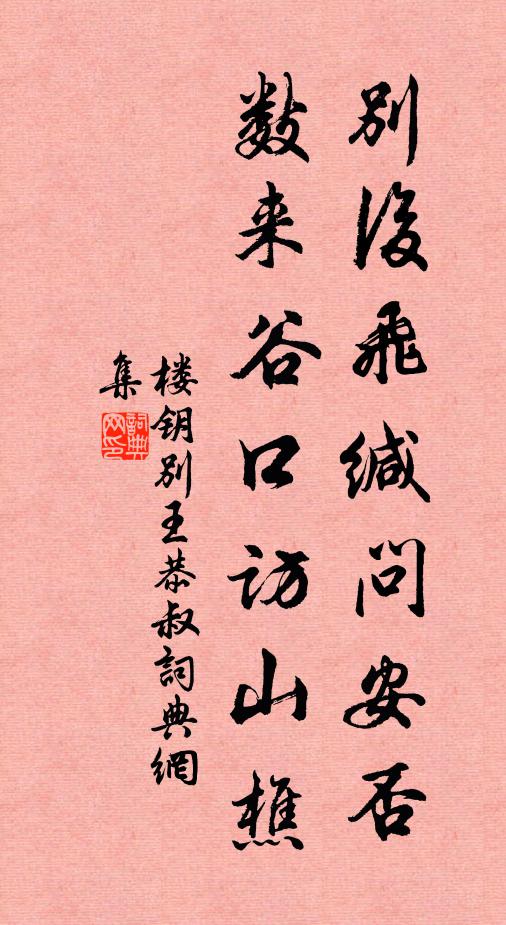 别後飛缄问安否
数来谷口访山樵
楼钥别王恭叔詞典網
集
詞典网印